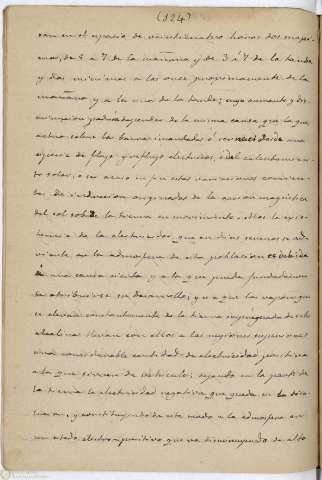 (124)
ran en el espacio de veinticuatro horas dos maxi-
mas, de 5 á 7 de la mañana y de 3 á 7 de la tarde
y dos minimas a las once proximamente de la
mañana, y a la una de la tarde; cuyo aumento y dis-
minucion pudiera depender de la misma causa que la que
actua sobre las barras imantadas ó ser debida á una
especie de flujo y reflujo electrico, ó del calentamien-
to solar; o ser acaso
tes de induccion originadas de la accion magnetica
del sol sobre la tierra en movimiento. Mas la exis-
tencia de la electricidad que en dias serenos se ad-
vierte en la atmosfera de esta poblacion es debida
á una causa cierta y a la que puede fundadamen-
te atribuirse su desarrollo; y es que los vapores que
se elevan constantemente de la tierra impregnada de sales
alcalinas llevan con ellos a las regiones superiores
una considerable cantidad de electricidad positiva
a la que sirven de vehiculo; dejando en la parte de
la tierra la electricidad negativa que queda en la
y constituyendo de este modo a la atmosfera en
un estado electro-positivo que va disminuyendo de alto